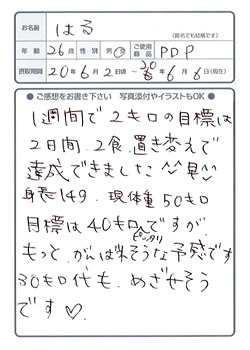 お名前 はる
(匿名でも結構です)
年齢 26歳 性別 男・女 ご使用商品 PDP
摂取期間 20年6月2日頃〜20年6月6日(現在)
●ご感想をお書き下さい 写真添付やイラストもOK●
1週間で2キロの目標は
2日間、2食、置き変えで
達成できました^^早^^
身長149、現体重50キロ
目標は40キロピッタリですが、
もっと、がんばれそうな予感です
30キロ代も、めざせそう
です♡。